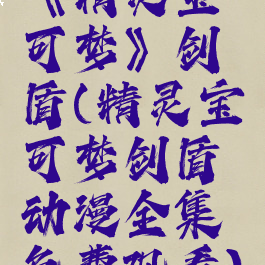 《精灵宝
可梦》剑
盾(精灵宝
可梦剑盾
动漫全集
免费观看)